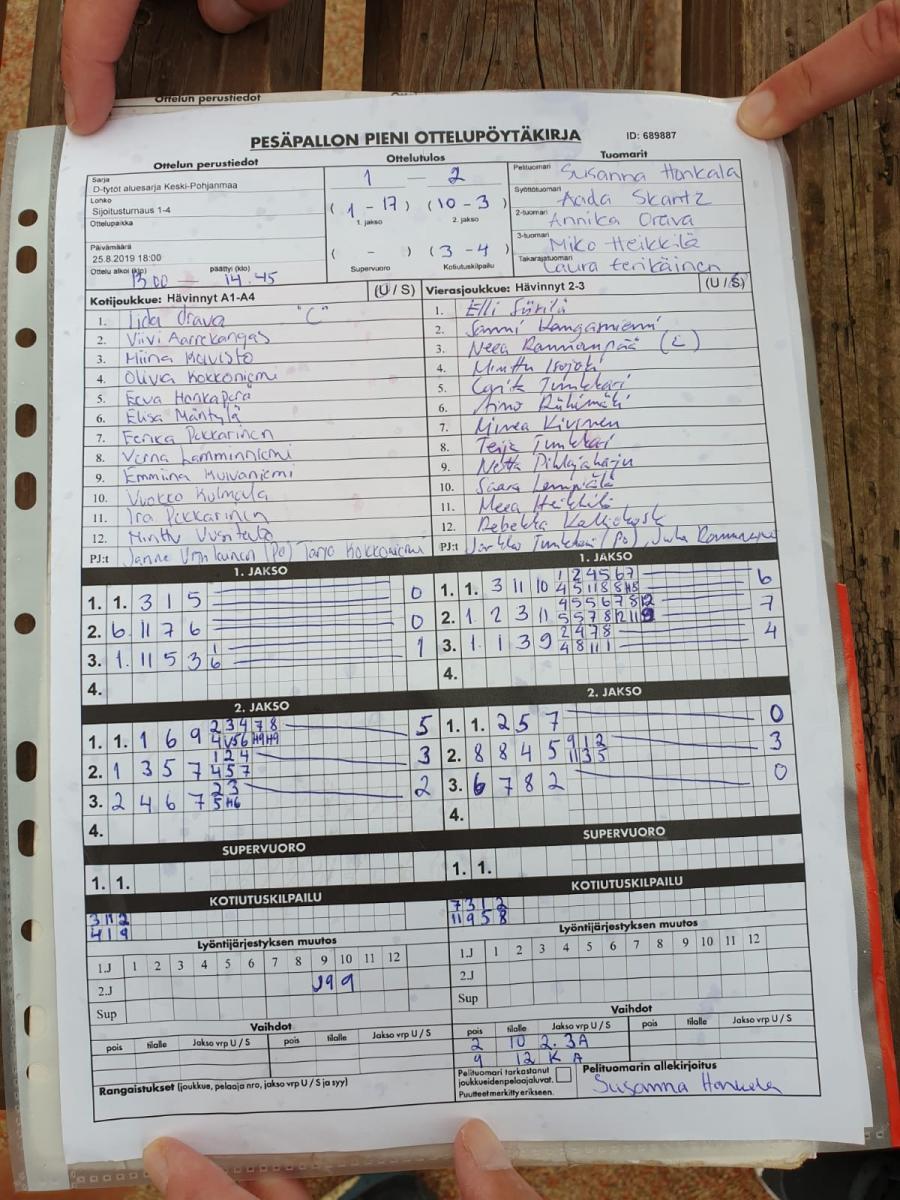 Ottelun perustiedot
PESÄPALLON PIENI OTTELUPÖYTÄKIRJA ID: 689887
Ottelun perustiedot Ottelutulos Tuomarit
Sarja
D-tytöt aluesarja Keski-Pohjanmaa
Lohko
Sijoitusturnaus 1-4
Ottelupaikka
Päivämäärä
25.8.2019 18:00
Ottelu alkoi (klo) päättyi (klo)
13.00 — 14.45
1 — 2
( 1 - 17 ) ( 10 - 3 )
1. jakso 2. jakso
( - ) ( 3 - 4 )
Supervuoro Kotiutuskilpailu
Pelituomari Susanna Honkala
Syöttötuomari Aada Skantz
2-tuomari Annika Orava
3-tuomari Miko Heikkilä
Takarajatuomari Laura
Kotijoukkue: Hävinnyt A1-A4 (U / S)
1. Iida Orava "C"
2. Viivi Aarrekangas
3. Miina
4. Olivia Kokkoniemi
5. Eeva Honkaperä
6. Elisa Mäntylä
7. Eerika Pekkarinen
8. Verna Lamminniemi
9. Emmiina
10. Vuokko Kulmala
11. Ira Pekkarinen
12. Minttu Vusitalo
PJ:t Janne (PO) Tarjo Kokkoniemi
Vierasjoukkue: Hävinnyt 2-3 (U / S)
1. Elli Siirilä
2. Sanni Kangasniemi
3. Neea
4. Minttu Isojoki
5. Junkkari
6. Aino Riihimäki
7. Minea Kivinen
8. Teija Junkkari
9. Netta Pihlajaharju
10. Saara Lempiälä
11. Meea Heikkilä
12. Rebekka Kalliokoski
PJ:t Jarkko Junkkari (PO), Juha
1. JAKSO
1. 1. 3 1 5 0
2. 6 11 7 6 0
3. 1. 11 5 3 1 1
6
4.
1. JAKSO
1. 1. 3 11 10 1 2 4 5 6 7 6
4 5 11 8 8 H8
2. 1. 2 3 11 4 5 5 6 7 8 12 7
5 5 7 8 12 11 9
3. 1. 1 3 9 2 4 7 8 4
4 8 11 1
4.
2. JAKSO
1. 1. 1 6 9 2 3 4 7 8 5
4 V5 6 H9 H9
2. 1 3 5 7 1 2 4 3
4 5 7
3. 2 4 6 7 2 3 2
5 H6
4.
2. JAKSO
1. 1. 2 5 7 0
2. 8 8 4 5 9 1 2 3
11 3 5
3. 6 7 8 2 0
4.
SUPERVUORO
1. 1.
SUPERVUORO
1. 1.
KOTIUTUSKILPAILU
3 11 2
4 1 9
KOTIUTUSKILPAILU
7 3 1 2
11 9 5 8
Lyöntijärjestyksen muutos
1.J 1 2 3 4 5 6 7 8 9 10 11 12
2.J 9 9
Sup
Lyöntijärjestyksen muutos
1.J 1 2 3 4 5 6 7 8 9 10 11 12
2.J
Sup
Vaihdot
pois tilalle Jakso vrp U / S pois tilalle Jakso vrp U / S
Vaihdot
pois tilalle Jakso vrp U / S pois tilalle Jakso vrp U / S
2 10 2. 3A
9 12 K A
Rangaistukset (joukkue, pelaaja nro, jakso vrp U / S ja syy)
Pelituomari tarkastanut
joukkueidenpelaajaluvat.
Puutteetmerkittyerikseen.
Pelituomarin allekirjoitus
Susanna Honkala